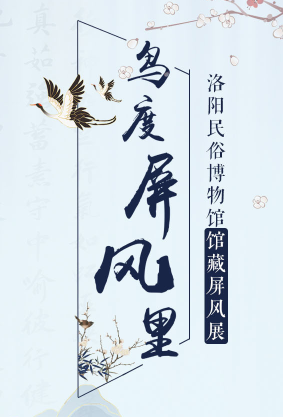 鸟度屏风里
洛阳民俗博物馆馆藏屏风展